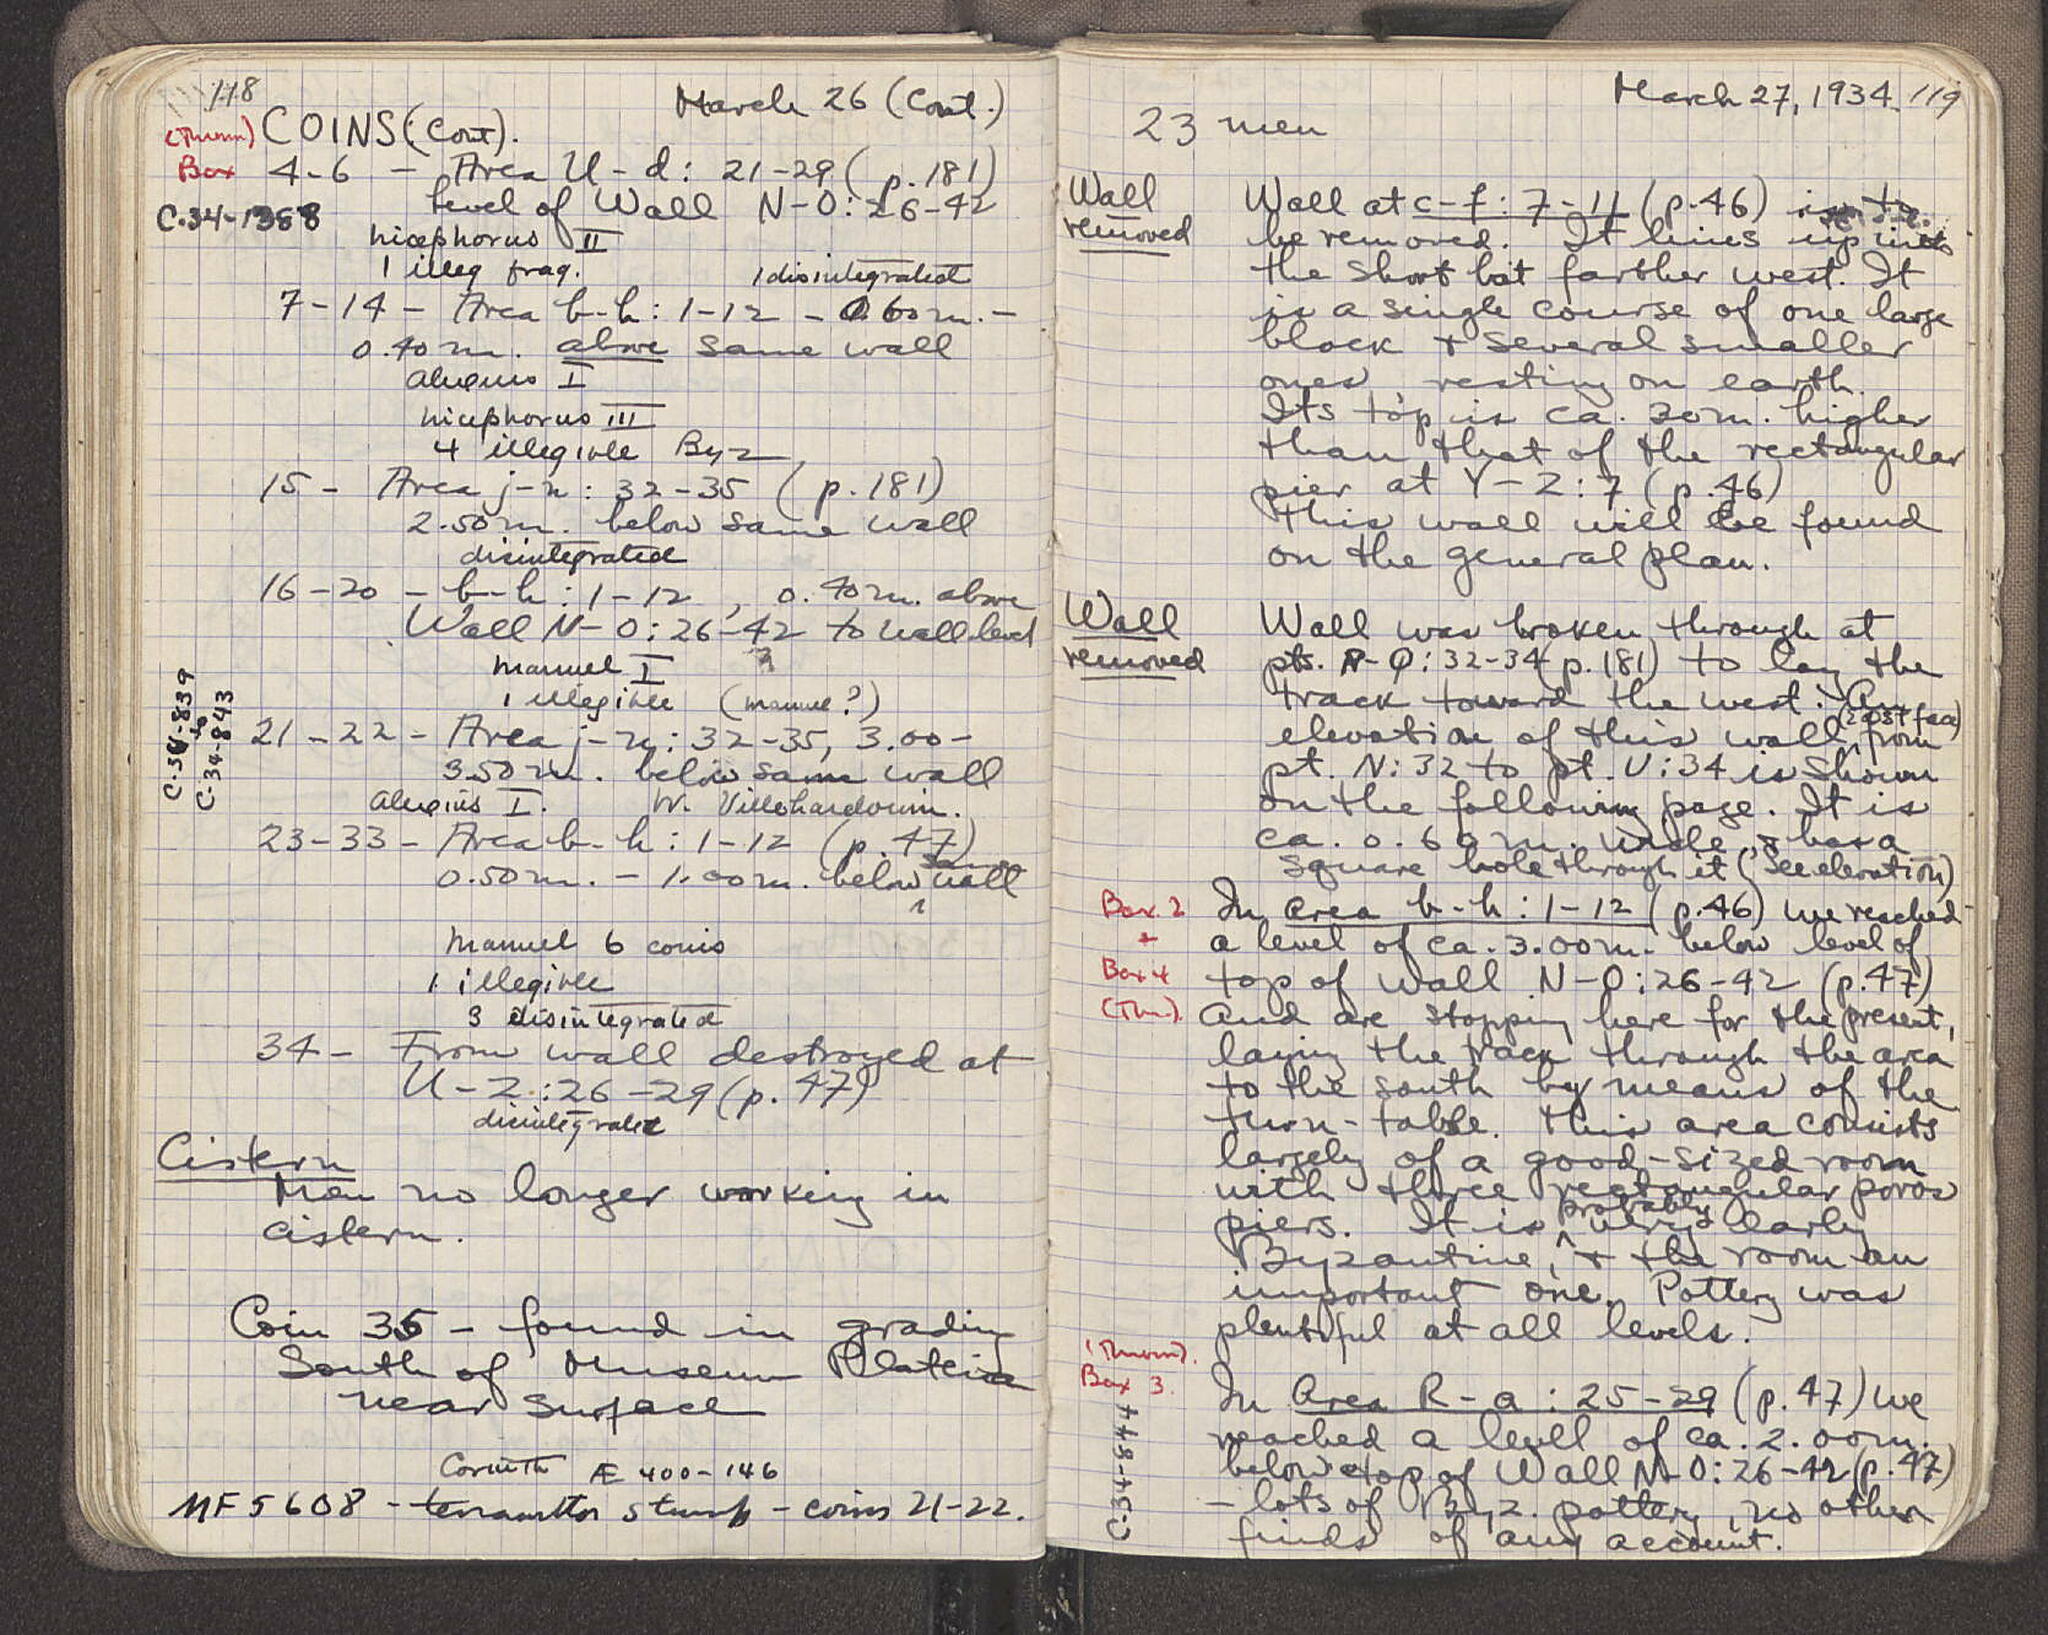 118
March 26 (Cont.)
(Thurm) COINS (Cont).
Box 4-6 – Area U-d: 21-29 (p. 181)
level of Wall N-O: 26-42
C.34-1388
Nicephorus II
1 illeg frag. 1 disintegrated
7-14 – Area b-h: 1-12 – 0.60 m. –
0.40 m. above same wall
Alexius I
Nicephorus III
4 illegible Byz
15 – Area j-n: 32-35 (p. 181)
2.50 m. below same wall
disintegrated
16-20 – b-h: 1-12, 0.40 m. above
Wall N-O: 26-42 to wall level
Manuel I
1 illegible (Manuel?)
C-34-839
to
C-34-843
21-22 – Area j-n: 32-35, 3.00-
3.50 m. below same wall
Alexius I. W. Villehardouin.
23-33 – Area b-h: 1-12 (p. 47)
0.50 m. – 1.00 m. below same wall
Manuel 6 coins
1 illegible
3 disintegrated
34 – From wall destroyed at
U-Z: 26-29 (p. 47)
disintegrated
Cistern
Men no longer working in
cistern.
Coin 35 – found in grading
South of Museum Plateia
near surface
Corinth Æ 400-146
MF 5608 – terracotta stump – coins 21-22.
March 27, 1934 119
23 men
Wall
removed
Wall at c-f: 7-11 (p. 46) is to
be removed. It lines up with
the short bit farther west. It
is a single course of one large
block + several smaller
ones resting on earth.
Its top is ca. 30 m. higher
than that of the rectangular
pier at Y-Z: 7 (p. 46)
This wall will be found
on the general plan.
Wall
removed
Wall was broken through at
pts. P-Q: 32-34 (p. 181) to lay the
track toward the west. An
elevation of this wall (east face) from
pt. N: 32 to pt. U: 34 is shown
on the following page. It is
ca. 0.60 m. wide, + has a
square hole through it (see elevation)
Box 2
+
Box 4
(Thu.)
In area b-h: 1-12 (p. 46) we reached
a level of ca. 3.00 m. below level of
top of Wall N-O: 26-42 (p. 47)
and are stopping here for the present,
laying the track through the area
to the south by means of the
turn-table. This area consists
largely of a good-sized room
with three rectangular poros
piers. It is probably very early
Byzantine, + the room an
important one. Pottery was
plentiful at all levels.
(Thurm).
Box 3.
C-34-844
In Area R-a: 25-29 (p. 47) we
reached a level of ca. 2.00 m.
below top of Wall N-O: 26-42 (p. 47)
– lots of Byz. pottery, no other
finds of any account.